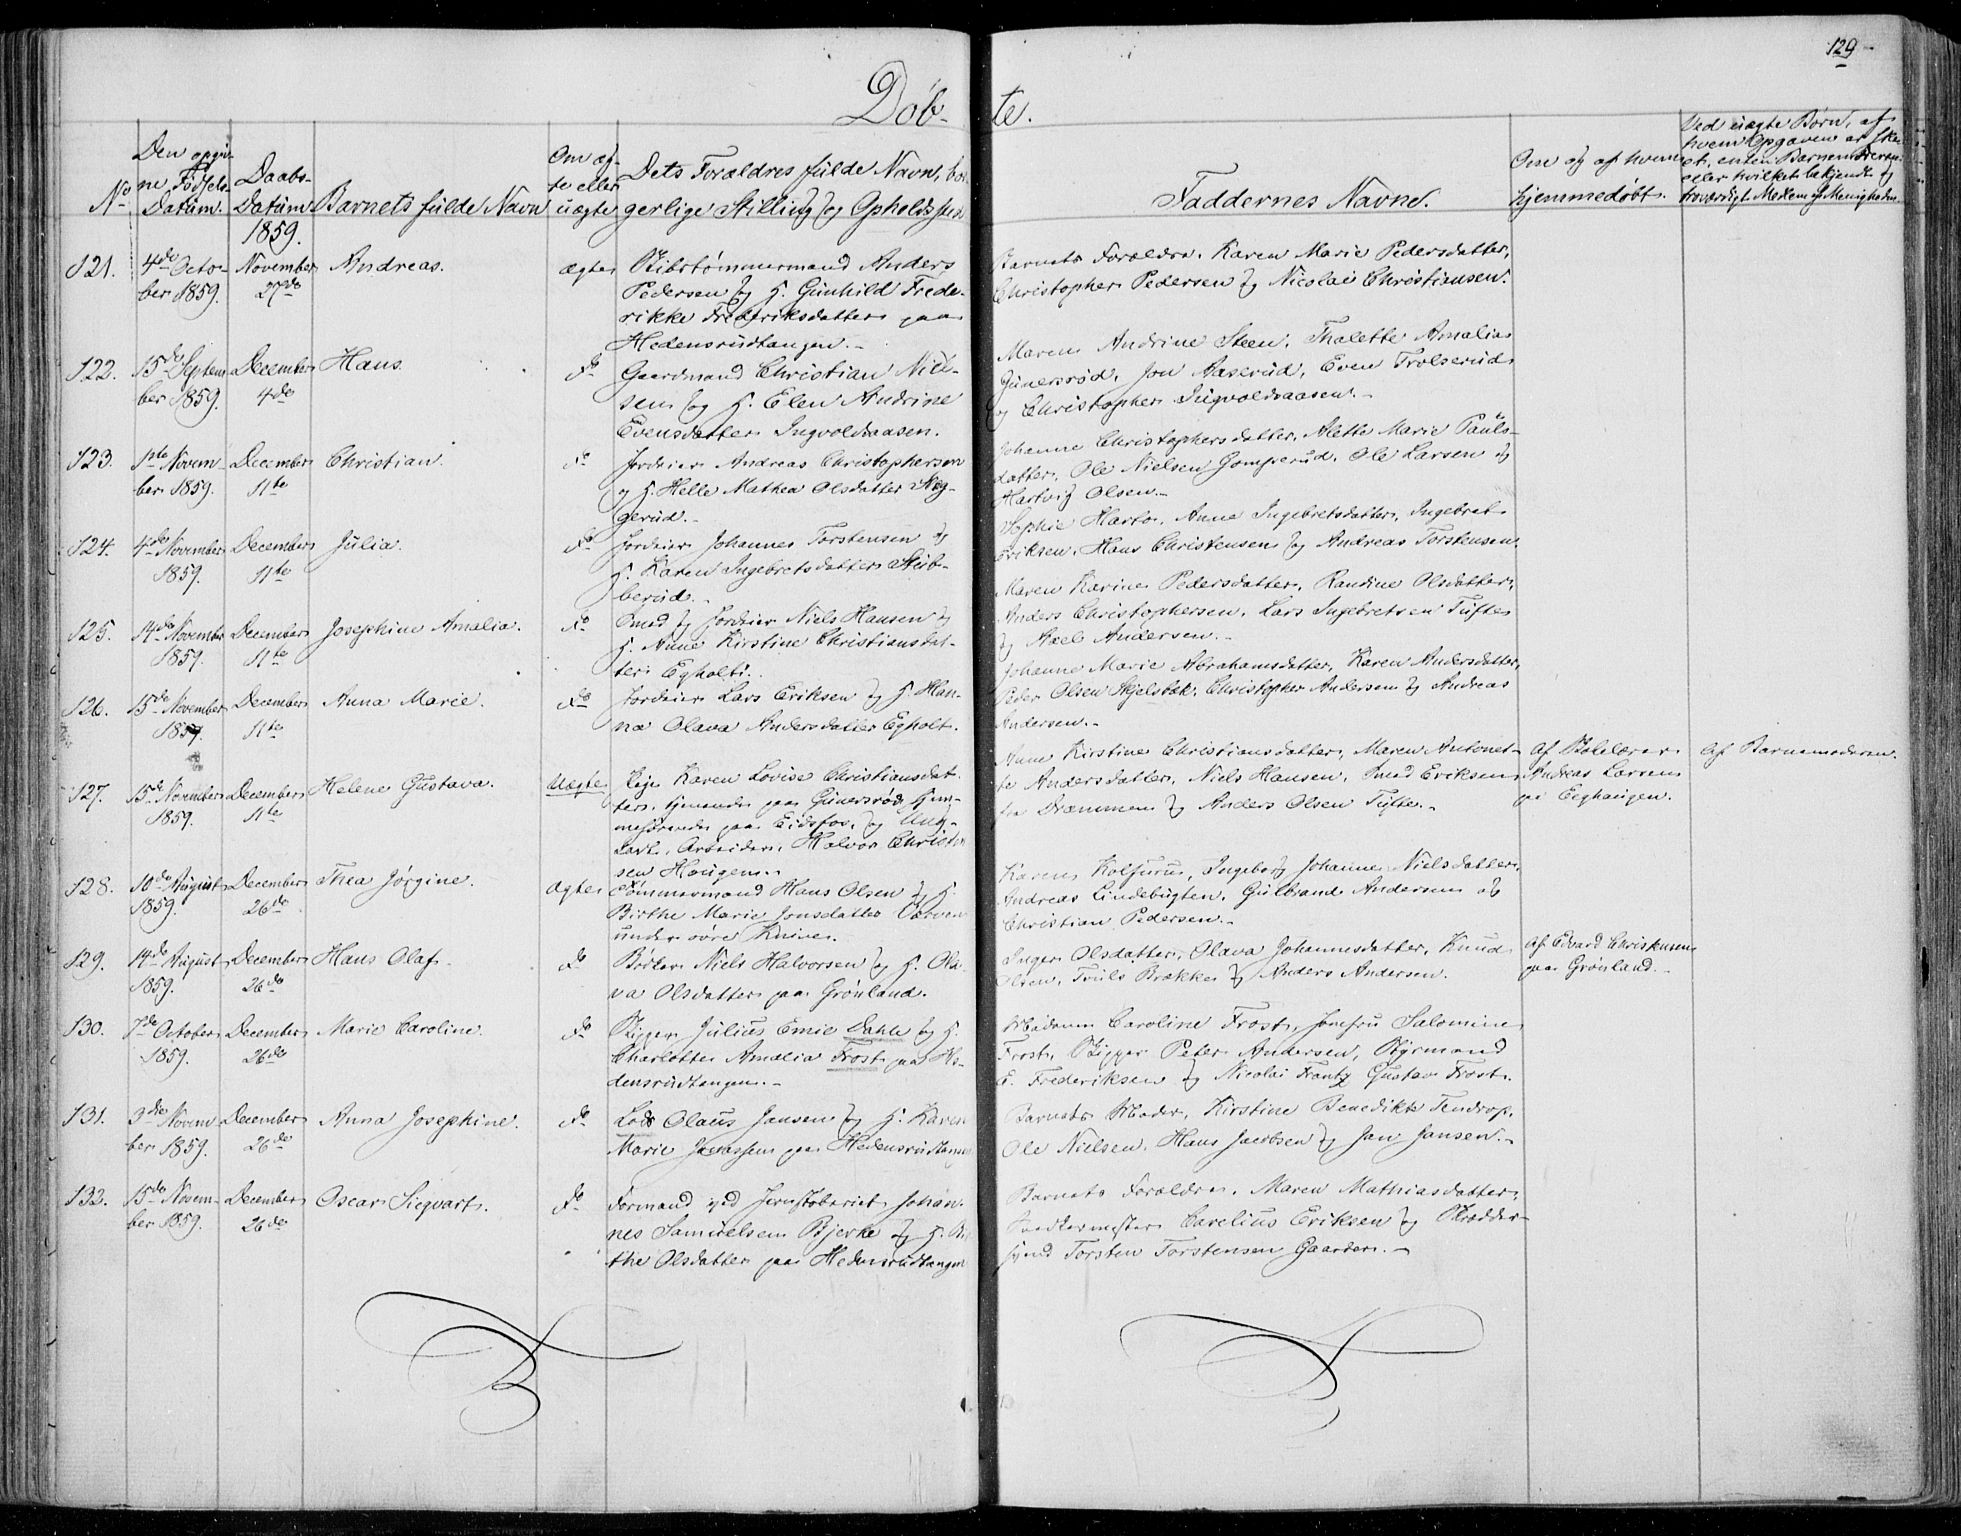 129
Døb-
te.
No
Den opgiv-
ne Fødsels-
Datum.
Daabs-
Datum
1859.
Barnets fulde Navn
Om æg-
te eller
uægte
Dets Forældres fulde Navn, bor-
gerlige Stilling og Opholdssted
Faddernes Navne.
Om og af hvem
hjemmedøbt.
Ved uægte Børn, af
hvem Opgaven er ske-
et, enten Barnemoderen
eller hvilket bekjendt og
troværdigt Medlem af Menigheden
121.
4de Octo-
ber 1859.
November
27de
Andreas.
ægte
Skibstømmermand Anders
Pedersen og H. Gunhild Frede-
rikke Frederiksdatter paa
Hedensrudtangen.
Barnets Forældre, Karen Marie Pedersdatter,
Christopher Pedersen og Nicolai Christiansen.
122.
15de Septem
ber 1859.
December
4de
Hans.
do
Gaardmand Christian Niel-
sen og H. Elen Andrine
Evensdatter Ingvoldsaasen.
Maren Andrine Steen, Thalette Amalia
Gunersrød, Jon Aaserud, Even Trolserud
og Christopher Ingvoldsaasen.-
123.
1ste Novem-
ber 1859.
December
11te
Christian.
do
Jordeier Andreas Christophersen
og H. Helle Mathea Olsdatter
gerud.-
Johanne Christophersdatter, Alette Marie Pauls-
datter, Ole Nielsen Gomperud, Ole Larsen og
Hartvig Olsen.-
124.
4de November
1859.
December
11te
Julia.
do
Jordeier Johannes Torstensen og
H. Karen Ingebretsdatter Stub-
berud.-
Sophie Anne Ingebretsdatter, Ingebret
Eriksen, Hans Christensen og Andreas Torstensen.
125.
14de November
1859.
December
11te
Josephine Amalia.
do
Smed og Jordeier Niels Hansen og
H. Anne Kirstine Christiansdat-
ter Egholt.
Maren Karine Pedersdatter, Randine Olsdatter,
Anders Christophersen, Lars Ingebretsen Tufte
og Axel Andersen.-
126.
15de November
1859.
December
11te
Anna Marie.
do
Jordeier Lars Eriksen og H. Han-
na Olava Andersdatter Egholt.
Johanne Marie Abrahamsdatter, Karen Andersdatter,
Peder Olsen Skjelsbæk, Christopher Andersen og Andreas
Andersen.-
127.
15de November
1859.
December
11te
Helene Gustava.
Uægte
Pige Karen Lovise Christiansdat-
ter, tjenende paa Gunersrød, hjem-
mehørende paa Eidsfos, og Ung-
karl, Arbeider, Halvor Christen
sen Haugen.
Anne Kirstine Christiansdatter, Maren Antonet-
te Andersdatter, Niels Hansen, Smed Eriksen
fra Drammen og Anders Olsen Tufte.-
Af Skolelærer
Andreas Larsen
paa Eeghaugen.
Af Barnemoderen.
128.
10de August
1859.
December
26de
Thea Jørgine.
ægte
Tømmermand Hans Olsen og H.
Birthe Marie Jonsdatter
under øvre Knive.
Karen Kolfurus, Ingeborg Johanne Nielsdatter,
Andreas Lindebugten, Gulbrand Andersen og
Christian Pedersen.-
129.
14de August
1859.
December
26de
Hans Olaf.
do
Bødker Niels Halvorsen og H. Ola-
va Olsdatter paa Grønland.
Inger Olsdatter, Olava Johannesdatter, Knud
Olsen, Truls Brække og Anders Andersen.
Af Edvard Christensen
paa Grønland.-
130.
7de October
1859.
December
26de
Marie Caroline.
do
Skipper Julius Emil Dahle og H.
Charlotte Amalia Frost paa He-
densrudtangen.-
Madam Caroline Frost, Jomfru Salomine
Frost, Skipper Peter Andersen, Styrmand
E. Frederiksen og Nicolai Frantz Gustav Frost.
131.
3die Novem
ber 1859.
December
26de
Anna Josephine.
do
Lods Olaus Jansen og H. Karen
Marie paa Hedensrudtangen
Barnets Moder, Kirstine Benedikte Tendrop,
Ole Nielsen, Hans Jacobsen og Jan Jansen.-
132.
15de Novem-
ber 1859.
December
26de
Oscar Sigvart.
do
Formand ved Jernstøberiet Johan-
nes Samuelsen Bjerke og H. Bir
the Olsdatter paa Hedensrudtangen
Barnets Forældre, Maren Mathiasdatter,
Carelius Eriksen og Skrædder-
svend Torsten Torstensen Gaarder.-